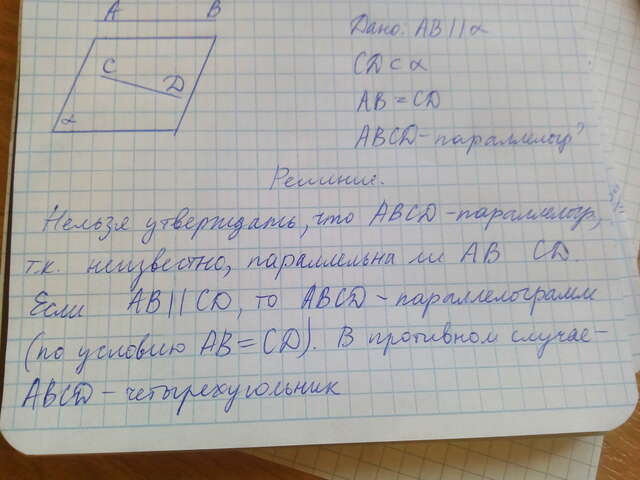 A B
Дано: AB || α
C
D
CD ⊂ α
AB = CD
α
ABCD – параллелогр?
Решение.
Нельзя утверждать, что ABCD – параллелогр,
т.к. неизвестно, параллельна ли AB CD.
Если AB || CD, то ABCD – параллелограмм
(по условию AB = CD). В противном случае –
ABCD – четырехугольник